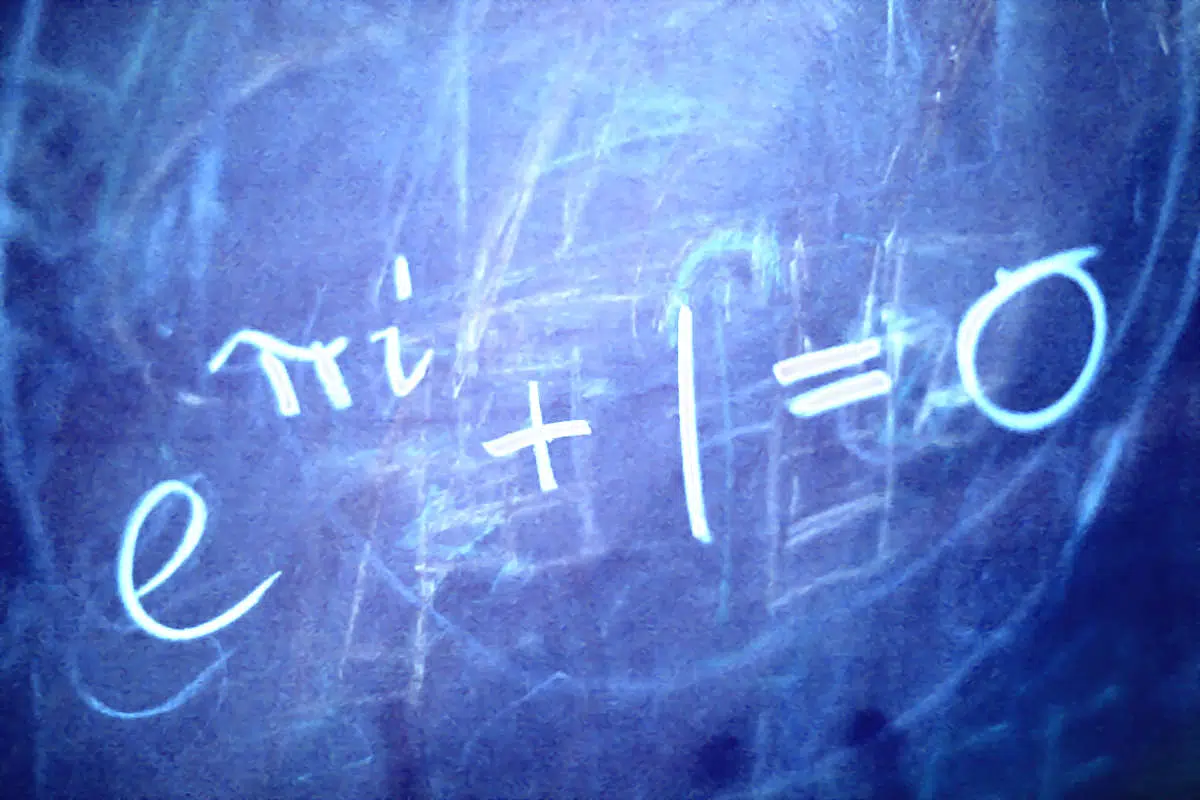 e^{πi} + 1 = 0